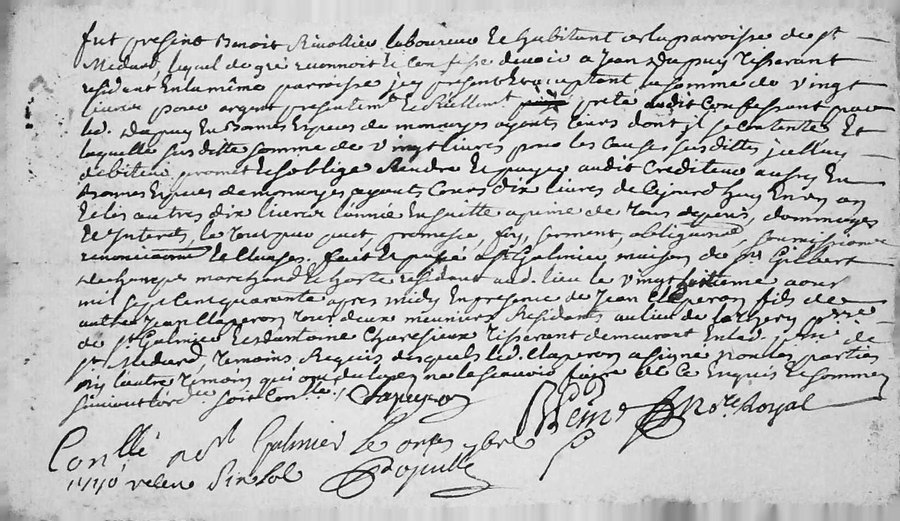 fut présent Benoit Rivollier laboureur et habitant en la parroisse de St
Medard lequel de gré reconnoit et confesse devoir à Jean Dupuy tisserant
résident en la même parroisse icy présent et acceptant la somme de vingt
livres pour argent présentement et réellement prêté audit confessant par
led. Dupuy en bonnes espèces de monoyes ayants cours dont il se contente Et
laquelle susditte somme de vingt livres pour les causes susdittes icelluy
débiteur promet et s'oblige rendre et payer audit créditeur aussy en
bonnes espèces de monoyes ayants cours dix livres de cejourd'huy en un an
et les autres dix livres l'année ensuitte a peine de tous depens, dommages
et interets, le tout par pact, promesse, foy, serment, obligations, soumissions
renonciations et clauses. fait et passé a St Galmier maison de Sr Gilbert
Dechanges marchand et hoste résidant aud. lieu le vingt
mil sept cent quarante après midy en présence de Jean Claperon fils de
autre Jean Claperon tous deux meuniers résidents au lieu de parre
de St Galmier et d'antoine tisserant demeurant en lad. parre de
St Medard, témoins requis desquels led. Claperon a signé non les parties
ny l'autre témoin qui ont dit ne le scavoir faire de ce enquis et sommés
soit con.llé Clapeyron
not.re Royal
Con.llé a St Galmier le onze 9bre
1740 reçu